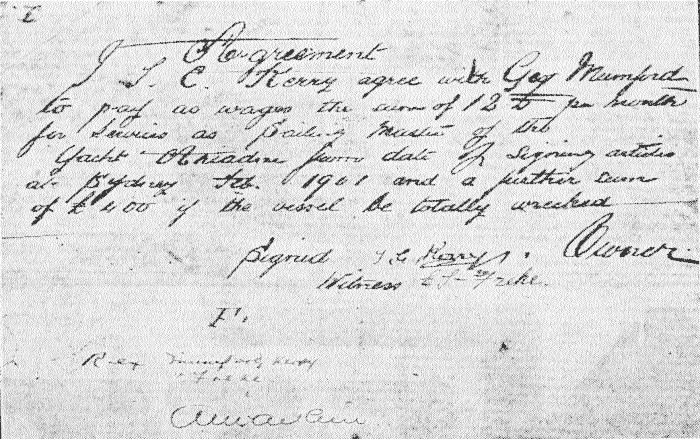 Agreement
I T. C. Kerry agree with Geo Mumford
to pay as wages the sum of 12 £ per month
for services as Sailing Master of the
Yacht Ariadne from date of signing articles
at Sydney Feb. 1901 and a further sum
of £400 if the vessel be totally wrecked
Signed T C Kerry. Owner
Witness Freke.
F.
Rex Mumford Kerry
Freke